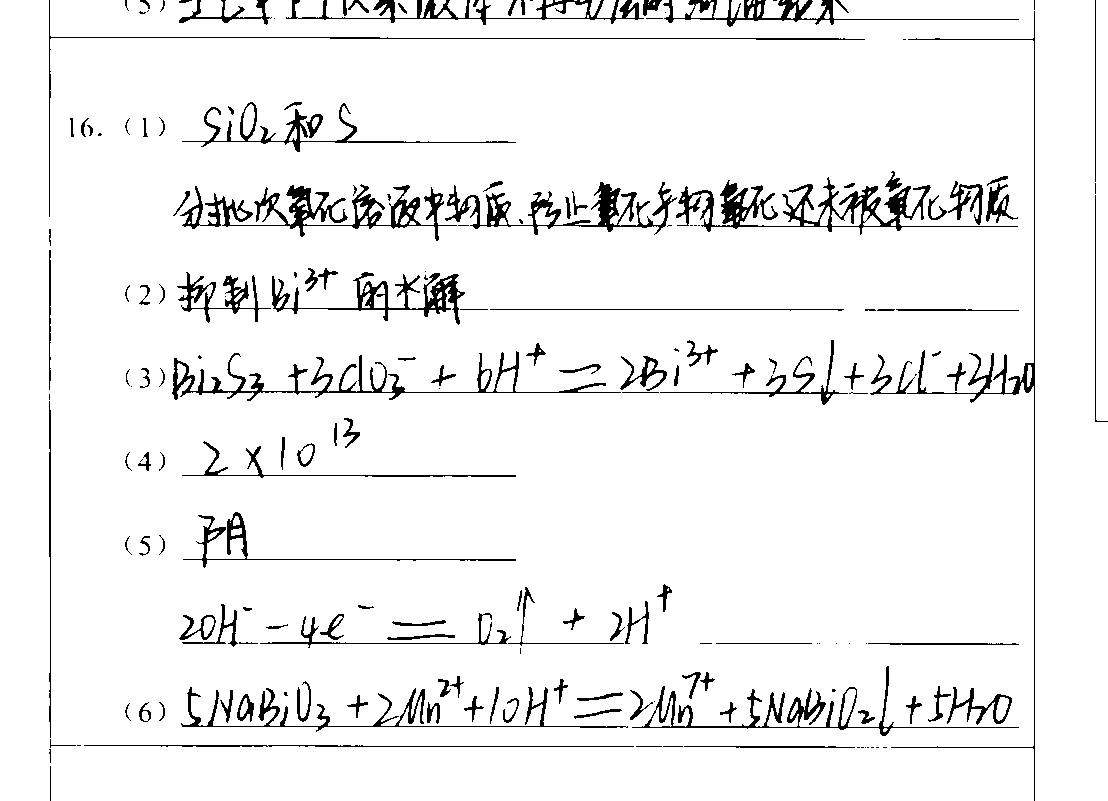 16. (1) SiO₂和S
分批次氧化溶液中物质、防止氧化产物氧化还未被氧化物质
(2) 抑制Bi³⁺的水解
(3) Bi₂S₃ + 3ClO₃⁻ + 6H⁺ = 2Bi³⁺ + 3S↓ + 3Cl⁻ + 3H₂O
(4) 2×10¹³
(5) 阴
2OH⁻ - 4e⁻ = O₂↑ + 2H⁺
(6) 5NaBiO₃ + 2Mn²⁺ + 10H⁺ = 2Mn⁷⁺ + 5NaBiO₂↓ + 5H₂O